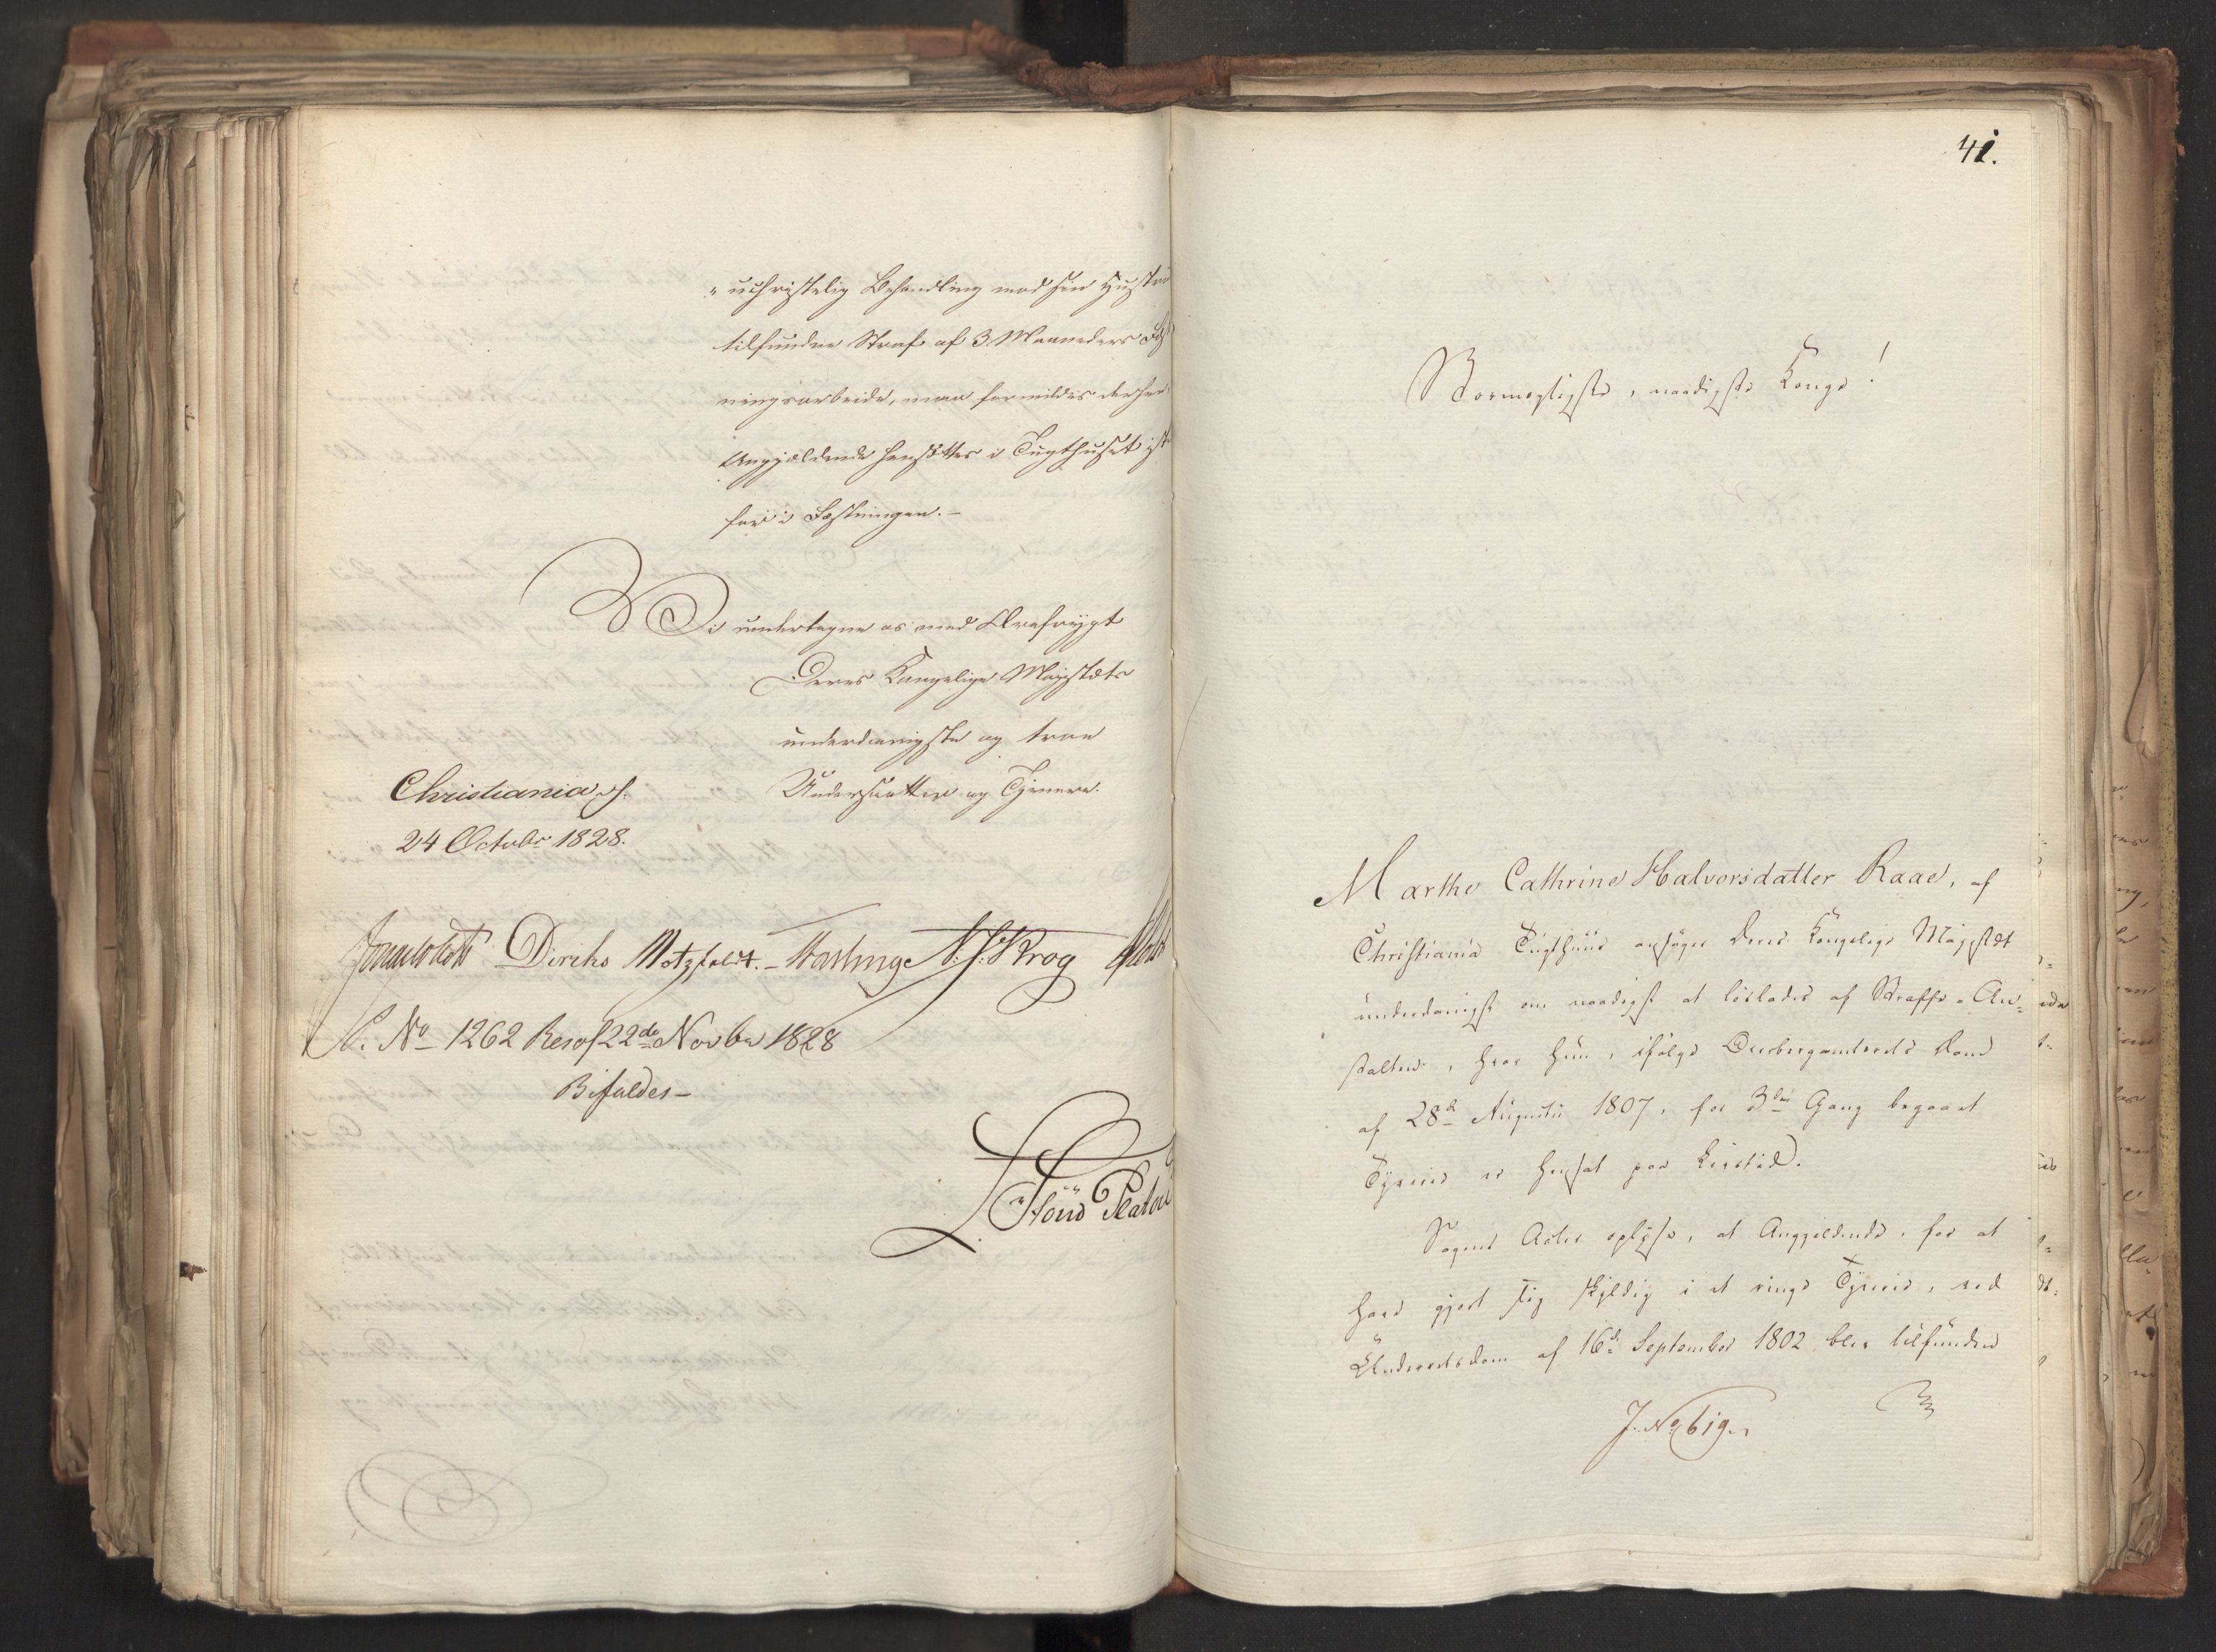 "uchristelig Behandling mod sin Hustru
tilfundne Straf af 3 Maaneders Fæst
ningsarbeide, maa formildes derhen
Angjældende hensættes i Tugthuset iste
for i Fæstningen.-
Vi undertegne os med Ærefrygt
Deres Kongelige Majestæts
underdanigste og troe
Undersaatter og Tjenere.
Christiania d.
24 Octobr 1828.
Jonas Collett Diriks Motzfeldt. N. J. Krog
S. No 1262 Resol 22de Novbr 1828
Bifaldes-
41.
Stormægtigste, naadigste Konge!
Marthe Cathrine Halvorsdatter Raae, af
Christiania Tugthuus ansøger Deres Kongelige Majestæt
underdanigst om naadigst at løslades af Straffe-An-
stalten, hvor hun, ifølge Overbergamtsrets Dom
af 28d Augusti 1807, for 3die Gang begaaet
Tyverie er hensat paa Livstid.
Sagens Acter oplyse, at Angjeldende, for at
have gjort sig skyldig i et ringe Tyverie, ved
Underretsdom af 16d September 1802 blev tilfunden
J. No 619.